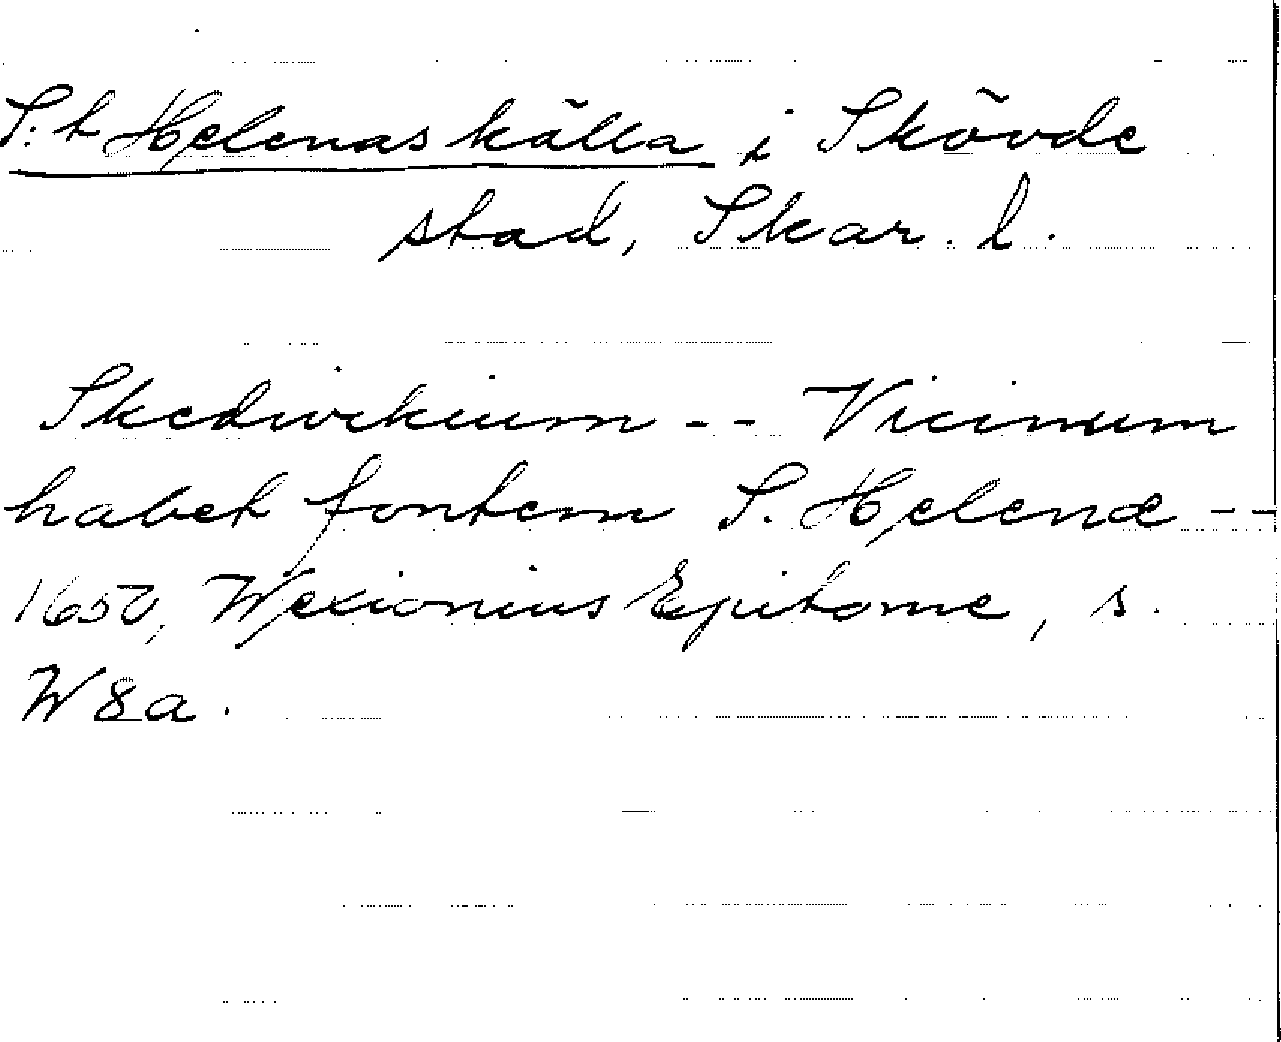 S:t Helenas källa i Skövde
stad, Skar. l.
Skedwikium -- Vicinum
habet fontem S. Helenæ --
1650, Wexionius Epitome, s.
W8a.